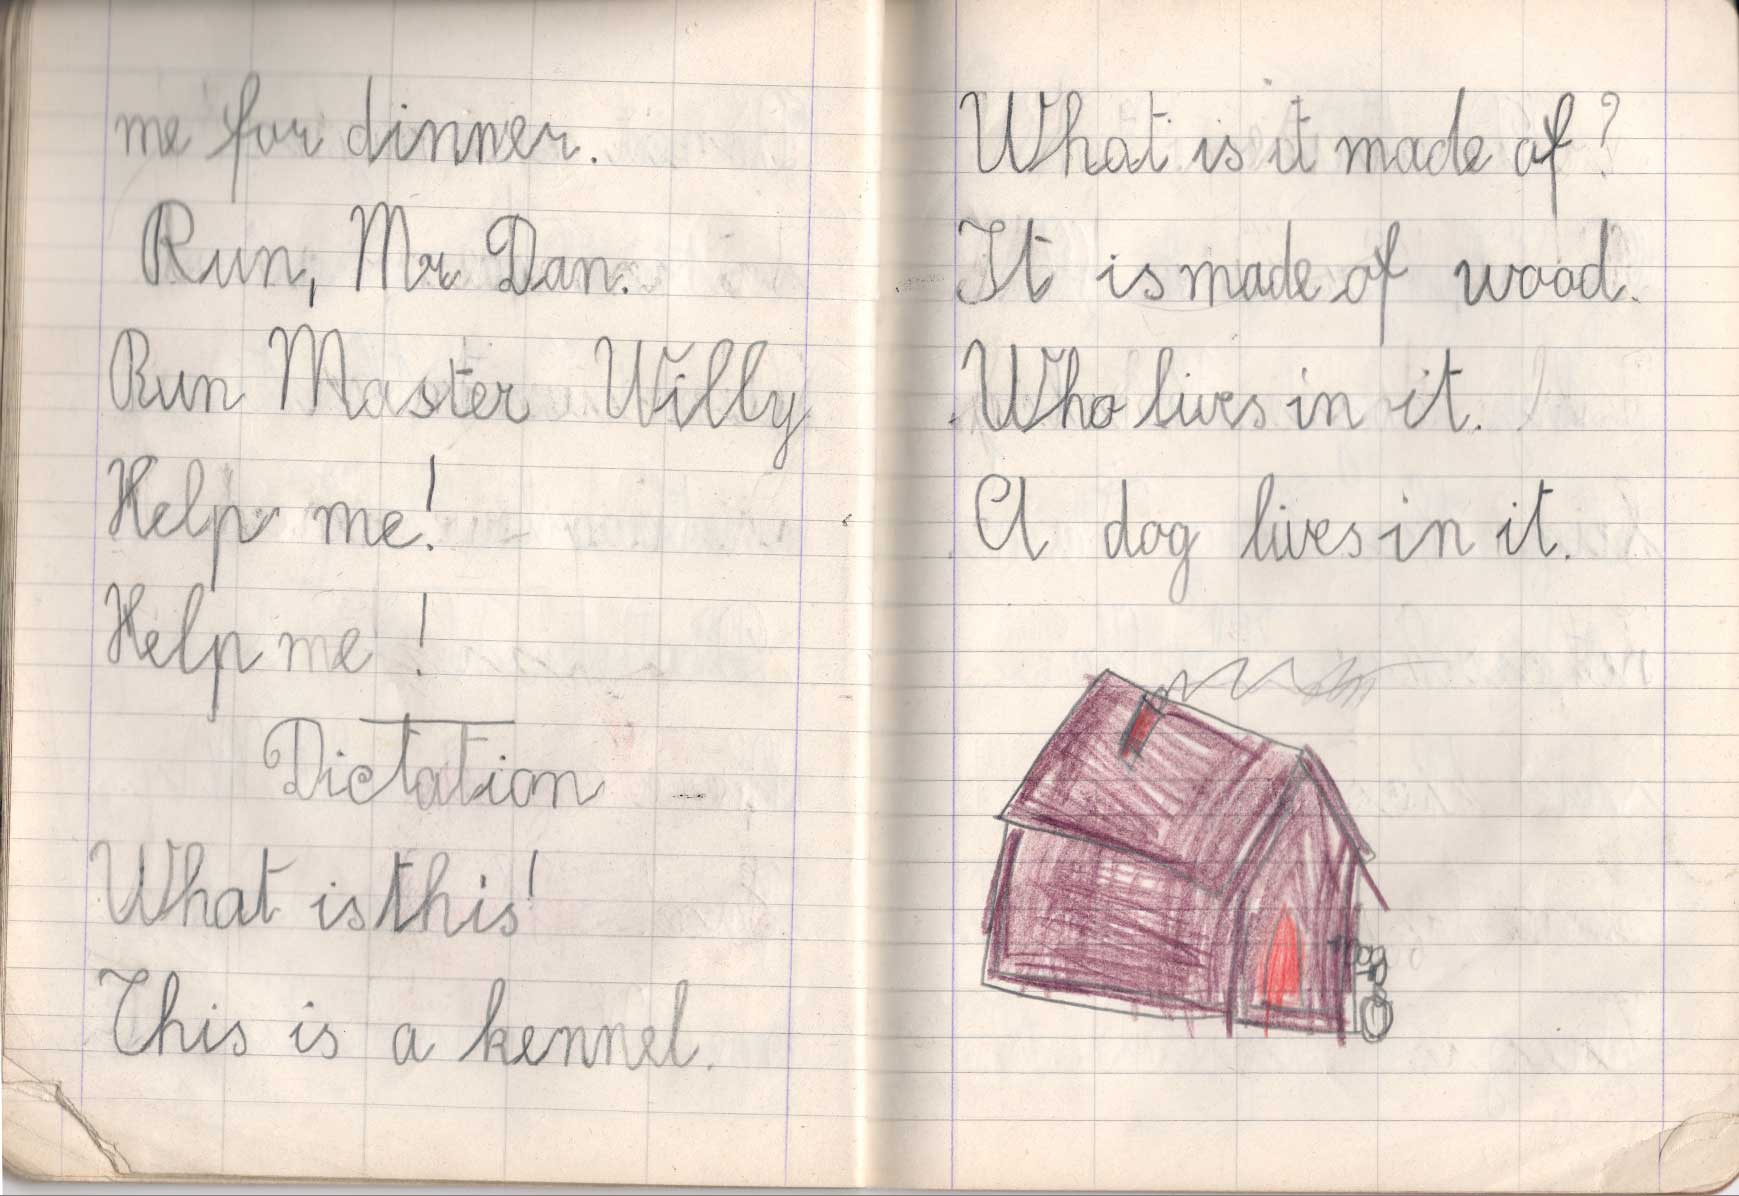 me for dinner.
Run, Mr Dan.
Run Master Willy
Help me!
Help me!
Dictation
What is this!
This is a kennel.
What is it made of?
It is made of wood.
Who lives in it.
A dog lives in it.